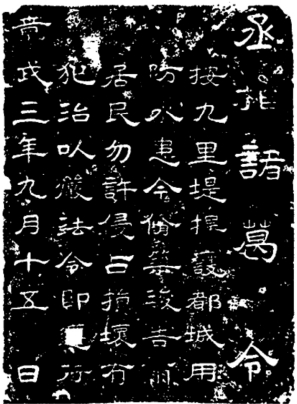 丞相諸葛令
按九里堤捍護都城用
防水患今脩築浚告爾
居民勿許侵占損壞有
犯治以嚴法令即行
章武三年九月十五日